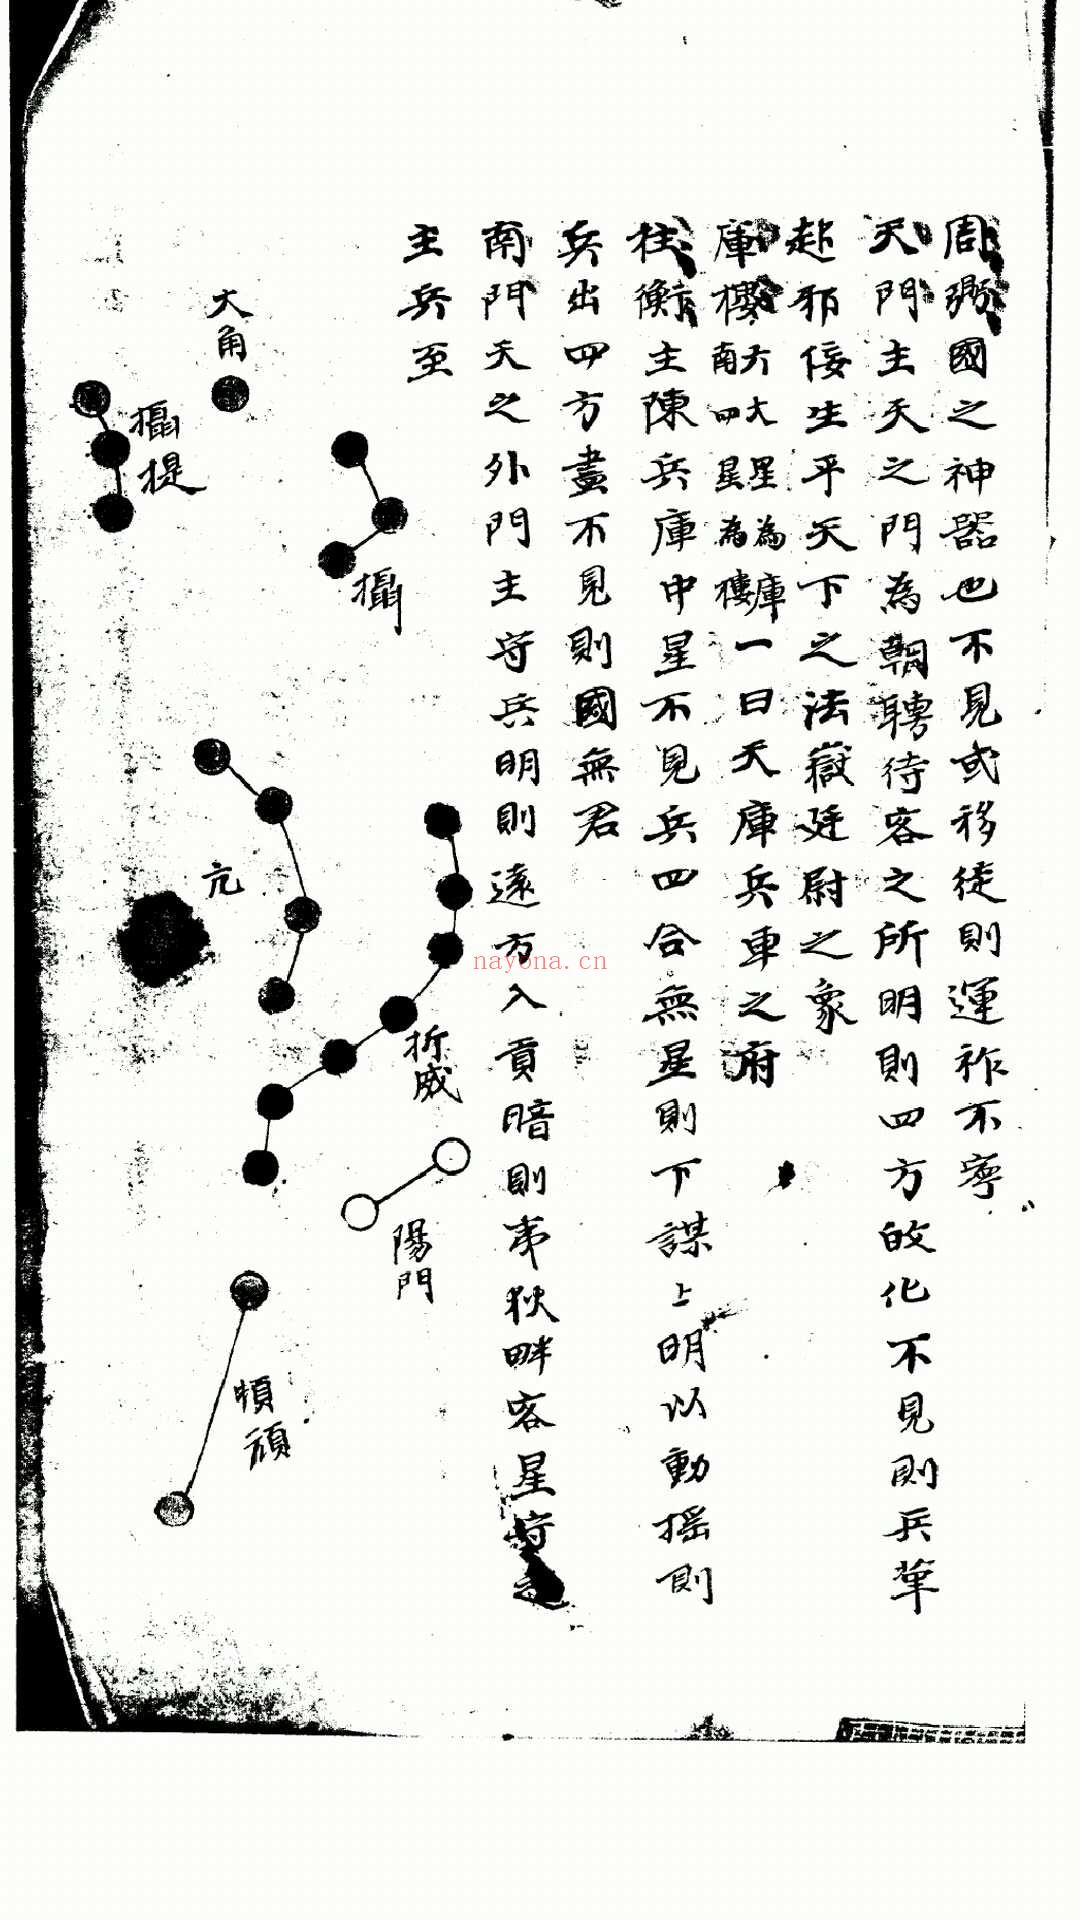 周鼎國之神器也不見或移徒則運祚不寧
天門主天之門為朝聘待客之所明則四方皈化不見則兵革
起邪佞生平天下之法嶽廷尉之象
庫樓六大星為庫南四星為樓一曰天庫兵車之府
柱衡主陳兵庫中星不見兵四合無星則下謀上明以動摇則
兵出四方盡不見則國無君
南門天之外門主守兵明則遠方入貢暗則夷狄畔客星守之
主兵至
大角
攝提
攝
亢
折威
陽門
頓頑
nayona.cn